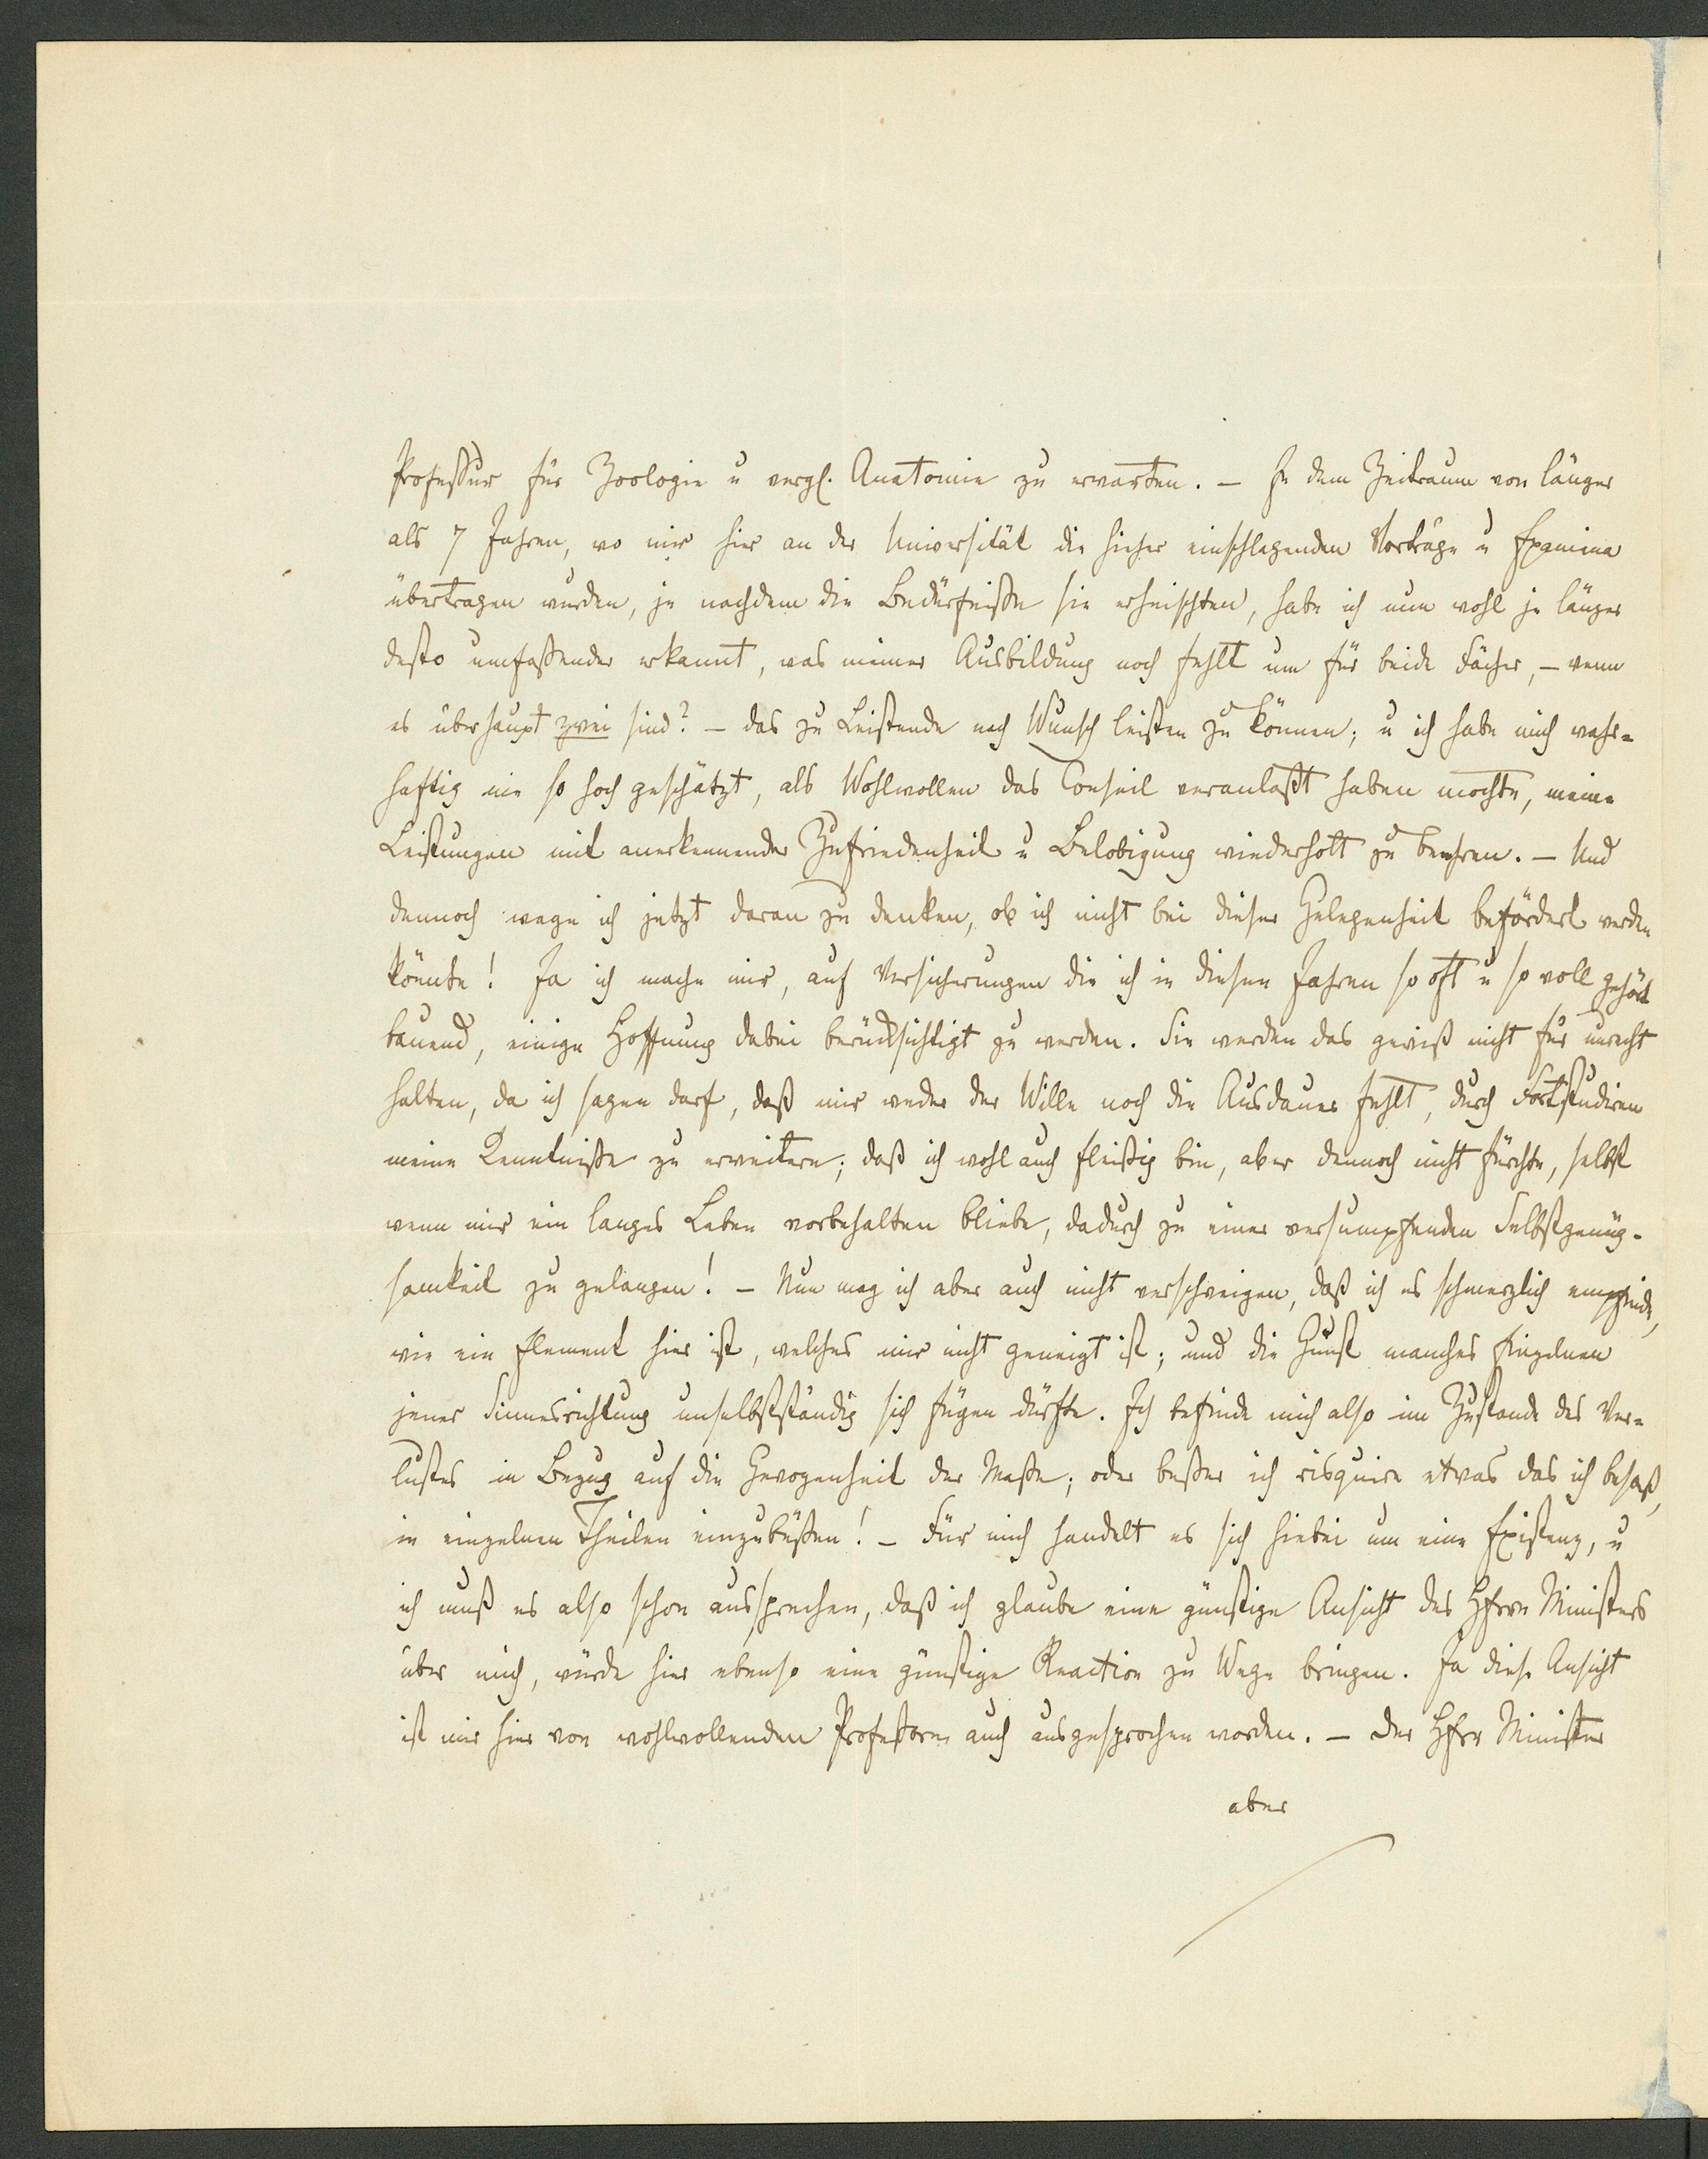 Professur für Zoologie u vergl. Anatomie zu erwarten. – In dem Zeitraum von länger
als 7 Jahren, wo mir hier an der Universität die hieher einschlagenden Vorträge u Examina
übertragen wurden, je nachdem die Bedürfniße sie erheischten, habe ich nun wohl je länger
desto umfaßender erkannt, was meiner Ausbildung noch fehlt um für beide Fächer, – wenn
es überhaupt zwei sind? – das zu Leistende nach Wunsch leisten zu können; u ich habe mich wahr=
haftig nie so hoch geschätzt, als Wohlwollen das Conseil veranlaßt haben mochte, meine
Leistungen mit anerkennender Zufriedenheit u Belobigung wiederholt zu beehren. – Und
dennoch wage ich jetzt daran zu denken, ob ich nicht bei dieser Gelegenheit befördert werden
könnte! Ja ich mache mir, auf Versicherungen die ich in diesen Jahren so oft u so voll gehört
bauend, einige Hoffnung dabei berücksichtigt zu werden. Sie werden das gewiß nicht für unrecht
halten, da ich sagen darf, daß mir weder der Wille noch die Ausdauer fehlt, durch Fortstudiren
meine Kenntniße zu erweitern; daß ich wohl auch fleißig bin, aber dennoch nicht fürchte, selbst
wenn mir ein langes Leben vorbehalten bliebe, dadurch zu einer versumpfenden Selbstgenüg-
samkeit zu gelangen! – Nun mag ich aber auch nicht verschweigen, daß ich es schmerzlich empfinde,
wie ein Element hier ist, welches mir nicht geneigt ist; und die Gunst manches Einzelnen
jener Sinnesrichtung unselbstständig sich fügen dürfte. Ich befinde mich also im Zustande des Ver=
lustes in Bezug auf die Gewogenheit der Maße; oder beßer ich risquire etwas das ich besaß,
in einzelnen Theilen einzubüßen! – Für mich handelt es sich hiebei um eine Existenz, u
ich muß es also schon aussprechen, daß ich glaube eine günstige Ansicht des HErrn Ministers
über mich, würde hier ebenso eine günstige Reaction zu Wege bringen. Ja diese Ansicht
ist mir hier von wohlwollenden Profeßoren auch ausgesprochen worden. – Der HErr Minister
aber